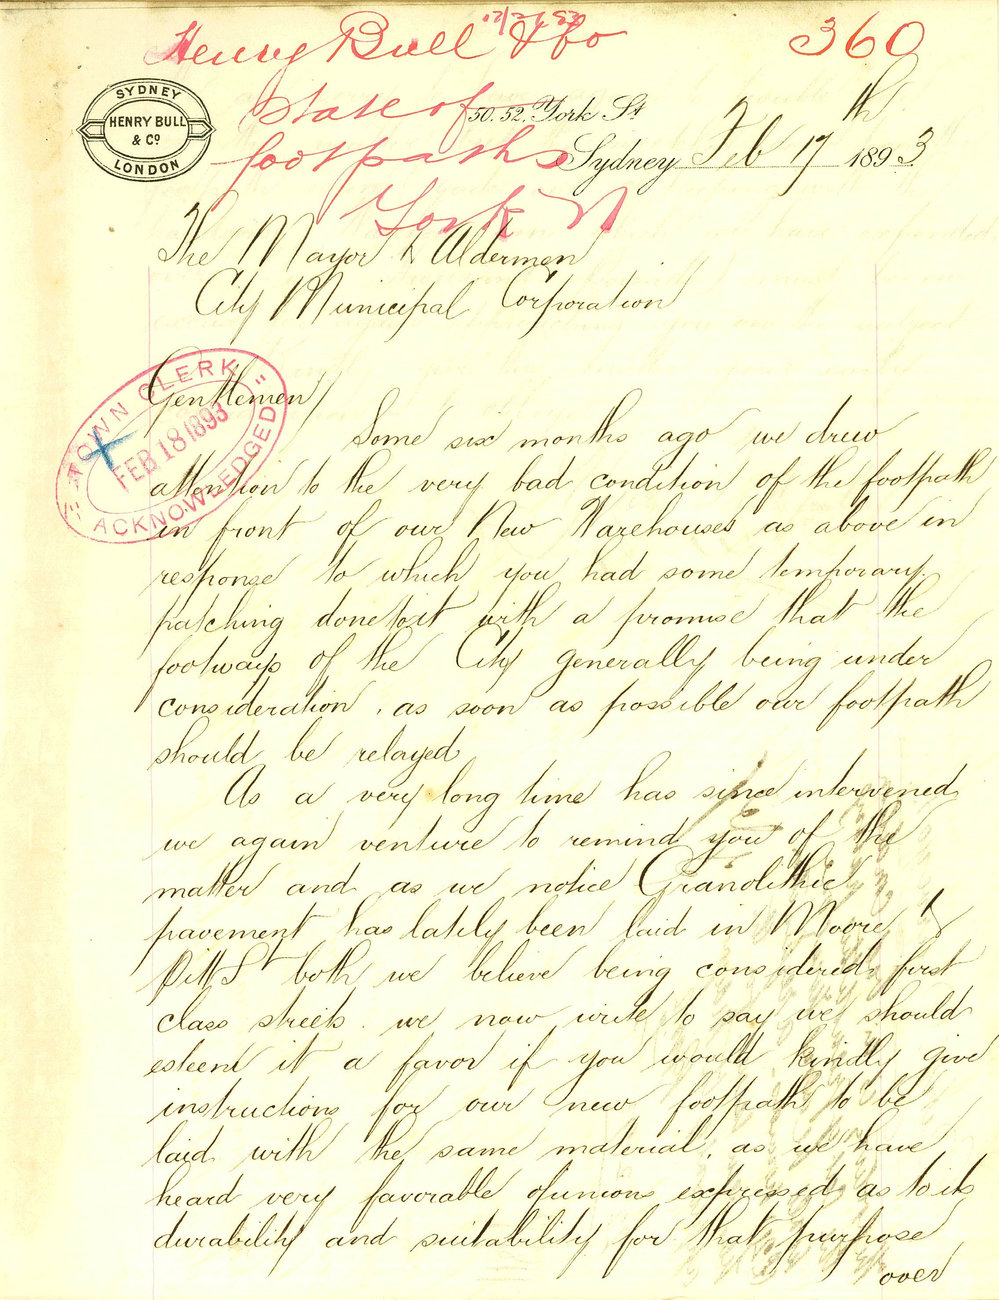 17/2/93
Henry Bull & Co
360
State of
footpaths
York St
SYDNEY
HENRY BULL
& Co
LONDON
50.52. York St
Sydney Feb 17th 1893
The Mayor & Aldermen
City Municipal Corporation
TOWN CLERK
FEB 18 1893
ACKNOWLEDGED
Gentlemen/
Some six months ago we drew
attention to the very bad condition of the footpath
in front of our New Warehouses as above in
response to which you had some temporary
patching done to it with a promise that the
footways of the City generally being under
consideration, as soon as possible our footpath
should be relayed
As a very long time has since intervened
we again venture to remind you of the
matter and as we notice Granolithic
pavement has lately been laid in Moore &
Pitt St both we believe being considered first
class streets. we now write to say we should
esteem it a favor if you would kindly give
instructions for our new footpath to be
laid with the same material, as we have
heard very favorable opinions expressed as to its
durability and suitability for that purpose
over